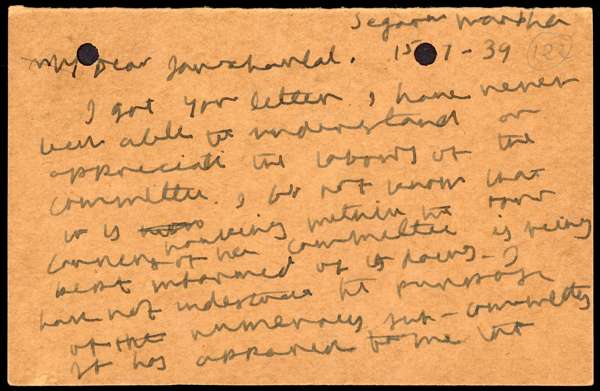 Segaon Wardha
My Dear Jawaharlal. 15-7-39 122
I got your letter. I have never
been able to understand or
appreciate the labours of the
Committee. I do not know that
it is
within the four
corners of the Committee is
informed of its doings. I
have not understood the purpose
of the numerous sub-committees
It has appeared to me that